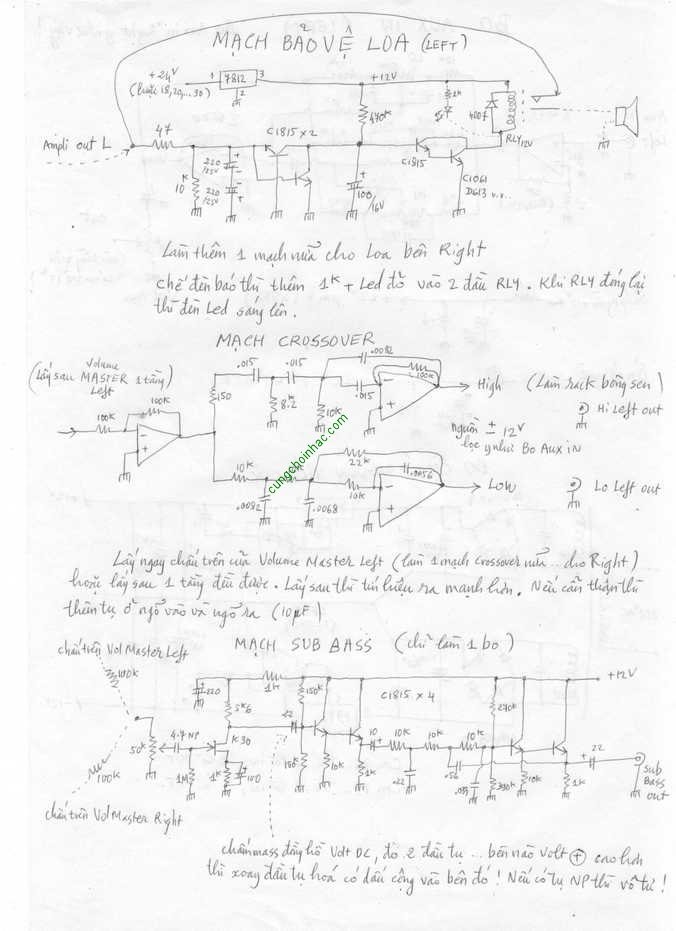 MẠCH BẢO VỆ LOA (LEFT)
+24V
(hoặc 18,20,...30)
1 7812 3
2
+12V
2K
470K
400T
47
C1815 x 2
Ampli out L
10K
220
/25V
220
/25V
100
/16V
C1815
C1061
D613 v.v..
RLY 12V
Làm thêm 1 mạch nữa cho Loa bên Right
chế đèn báo thì thêm 1K + Led đỏ vào 2 đầu RLY. Khi RLY đóng lại
thì đèn Led sáng lên.
MẠCH CROSSOVER
Volume
(Lấy sau MASTER 1 tầng)
Left
.015
.015
.0082
100K
150
8.2K
10K
.015
High
(Làm rack bông sen)
Hi Left out
100K
100K
nguồn ± 12V
lọc y như Bo Aux iN
10K
22K
.0056
10K
.0082
.0068
LOW
Lo Left out
cungchoinhac.com
Lấy ngay chấu trên của Volume Master Left (làm 1 mạch crossover nữa .. cho Right)
hoặc lấy sau 1 tầng đều được. Lấy sau thì tín hiệu ra mạnh hơn. Nếu cẩn thận thì
thêm tụ ở ngõ vào và ngõ ra (10µF)
MẠCH SUB BASS (chỉ làm 1 bo)
chấu trên Vol Master Left
100K
220
1K
150K
C1815 x 4
+12V
5K6
270K
22
50K
4.7 NP
K30
10
10K
10K
10K
22
1M
1K
100
150K
10K
1K
.22
.56
.039
390K
10K
1K
sub
Bass
out
100K
chấu trên Vol Master Right
chấm mass đồng hồ Volt DC, đo 2 đầu tụ ... bên nào Volt + cao hơn
thì xoay đầu tụ hoá có dấu cộng vào bên đó ! Nếu có tụ NP thì vô tư !